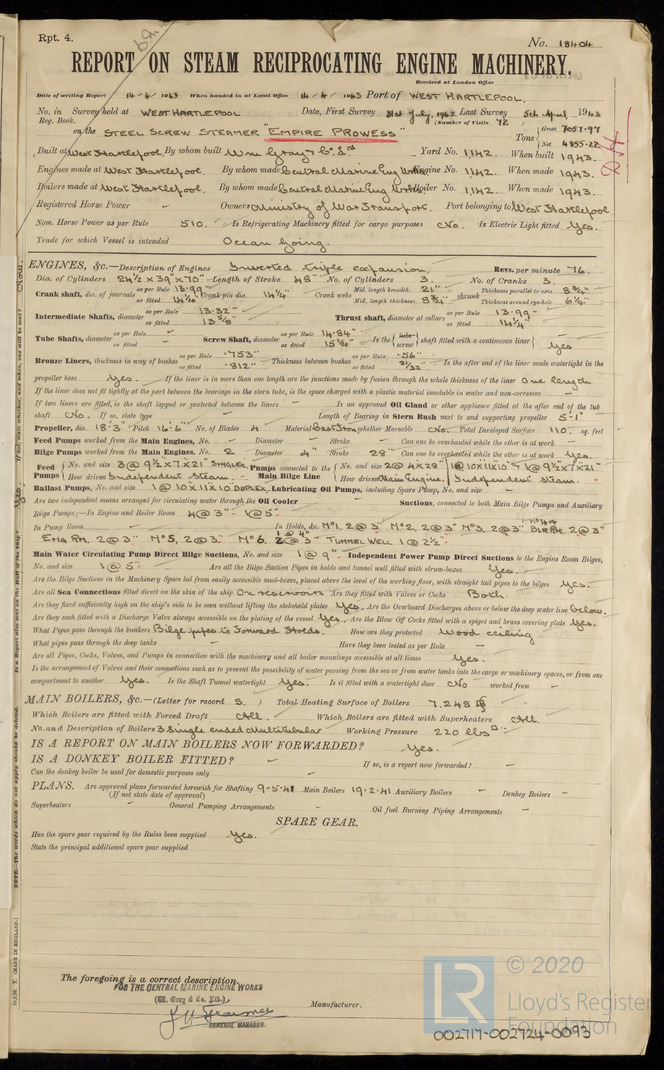 Rpt. 4.
No. 18404
REPORT ON STEAM RECIPROCATING ENGINE MACHINERY.
Received at London Office
Date of writing Report 14-4-1943 When handed in at Local Office 14/4/1943 Port of WEST HARTLEPOOL.
No. in Survey held at WEST HARTLEPOOL Date, First Survey 31st July, 1942 Last Survey 5th April 1943
Reg. Book. (Number of Visits 72)
on the STEEL SCREW STEAMER "EMPIRE PROWESS" Tons Gross 7057.97 Net 4855.22
Built at West Hartlepool. By whom built Wm Gray & Co. Ltd Yard No. 1142. When built 1943.
Engines made at West Hartlepool. By whom made Central Marine Eng Works Engine No. 1142. When made 1943.
Boilers made at West Hartlepool. By whom made Central Marine Eng Works Boiler No. 1142. When made 1943.
Registered Horse Power - Owners Ministry of War Transport. Port belonging to West Hartlepool
Nom. Horse Power as per Rule 510. Is Refrigerating Machinery fitted for cargo purposes No. Is Electric Light fitted Yes.
Trade for which Vessel is intended Ocean Going.
ENGINES, &c.—Description of Engines Inverted triple expansion. Revs. per minute 76.
Dia. of Cylinders 24½ x 39" x 70" Length of Stroke 48" No. of Cylinders 3. No. of Cranks 3.
Crank shaft, dia. of journals as per Rule 13.99" as fitted 14¼" Crank pin dia. 14¼" Crank webs Mid. length breadth 21" Mid. length thickness 8¾" shrunk Thickness parallel to axis 8¾" Thickness around eye-hole 6¼"
Intermediate Shafts, diameter as per Rule 13.32" as fitted 13⅝" Thrust shaft, diameter at collars as per Rule 13.99" as fitted 14¼"
Tube Shafts, diameter as per Rule - as fitted - Screw Shaft, diameter as per Rule 14.84" as fitted 15¼" Is the {tube screw} shaft fitted with a continuous liner Yes
Bronze Liners, thickness in way of bushes as per Rule .753" as fitted .812" Thickness between bushes as per Rule .56" as fitted 21/32" Is the after end of the liner made watertight in the
propeller boss Yes. If the liner is in more than one length are the junctions made by fusion through the whole thickness of the liner One length
If the liner does not fit tightly at the part between the bearings in the stern tube, is the space charged with a plastic material insoluble in water and non-corrosive -
If two liners are fitted, is the shaft lapped or protected between the liners - Is an approved Oil Gland or other appliance fitted at the after end of the tube
shaft No. If so, state type - Length of Bearing in Stern Bush next to and supporting propeller 5'-1"
Propeller, dia. 18'.3" Pitch 16'.6" No. of Blades 4 Material Cast Iron whether Moveable No. Total Developed Surface 110. sq. feet
Feed Pumps worked from the Main Engines, No. - Diameter - Stroke - Can one be overhauled while the other is at work -
Bilge Pumps worked from the Main Engines, No. 2 Diameter 4" Stroke 29" Can one be overhauled while the other is at work Yes.
Feed Pumps No. and size 3 @ 9½ x 7 x 21" SIMPLEX. How driven Independent Steam. Pumps connected to the Main Bilge Line No. and size 2 @ 4 x 29" 1 @ 10 x 11 x 10" & 1 @ 9½ x 7 x 21" How driven Main Engine. Independent Steam.
Ballast Pumps, No. and size 1 @ 10 x 11 x 10 DUPLEX. Lubricating Oil Pumps, including Spare Pump, No. and size -
Are two independent means arranged for circulating water through the Oil Cooler - Suctions, connected to both Main Bilge Pumps and Auxiliary
Bilge Pumps;—In Engine and Boiler Room 4 @ 3" - 1 @ 5"
In Pump Room - In Holds, &c. No 1, 2 @ 3" No 2, 2 @ 3" No 3, 2 @ 3" No 4 BLR RM. 2 @ 3"
Eng RM. 2 @ 3" No 5, 2 @ 3" No 6, 2 @ 3" TUNNEL WELL 1 @ 2½"
Main Water Circulating Pump Direct Bilge Suctions, No. and size 1 @ 9". Independent Power Pump Direct Suctions to the Engine Room Bilges,
No. and size 1 @ 5" Are all the Bilge Suction Pipes in holds and tunnel well fitted with strum-boxes Yes.
Are the Bilge Suctions in the Machinery Space led from easily accessible mud-boxes, placed above the level of the working floor, with straight tail pipes to the bilges Yes.
Are all Sea Connections fitted direct on the skin of the ship On reservoirs Are they fitted with Valves or Cocks Both.
Are they fixed sufficiently high on the ship's side to be seen without lifting the stokehold plates Yes. Are the Overboard Discharges above or below the deep water line below.
Are they each fitted with a Discharge Valve always accessible on the plating of the vessel Yes. Are the Blow Off Cocks fitted with a spigot and brass covering plate Yes.
What Pipes pass through the bunkers Bilge pipes to Forward Holds. How are they protected Wood ceiling
What pipes pass through the deep tanks - Have they been tested as per Rule -
Are all Pipes, Cocks, Valves, and Pumps in connection with the machinery and all boiler mountings accessible at all times Yes.
Is the arrangement of Valves and their connections such as to prevent the possibility of water passing from the sea or from water tanks into the cargo or machinery spaces, or from one
compartment to another Yes. Is the Shaft Tunnel watertight Yes. Is it fitted with a watertight door No worked from -
MAIN BOILERS, &c.—(Letter for record S.) Total Heating Surface of Boilers 7,248
Which Boilers are fitted with Forced Draft All. Which Boilers are fitted with Superheaters All.
No. and Description of Boilers 3 Single ended Multitubular Working Pressure 220 lbs □".
IS A REPORT ON MAIN BOILERS NOW FORWARDED? Yes.
IS A DONKEY BOILER FITTED? - If so, is a report now forwarded? -
Can the donkey boiler be used for domestic purposes only -
PLANS. Are approved plans forwarded herewith for Shafting 9-5-41 Main Boilers 19-2-41 Auxiliary Boilers - Donkey Boilers -
(If not state date of approval)
Superheaters - General Pumping Arrangements - Oil fuel Burning Piping Arrangements -
SPARE GEAR.
Has the spare gear required by the Rules been supplied Yes.
State the principal additional spare gear supplied
The foregoing is a correct description,
FOR THE CENTRAL MARINE ENGINE WORKS
(Wm. Gray & Co. Ltd.)
Manufacturer.
GENERAL MANAGER.
LR © 2020
Lloyd's Register
Foundation
002717-002724-0093